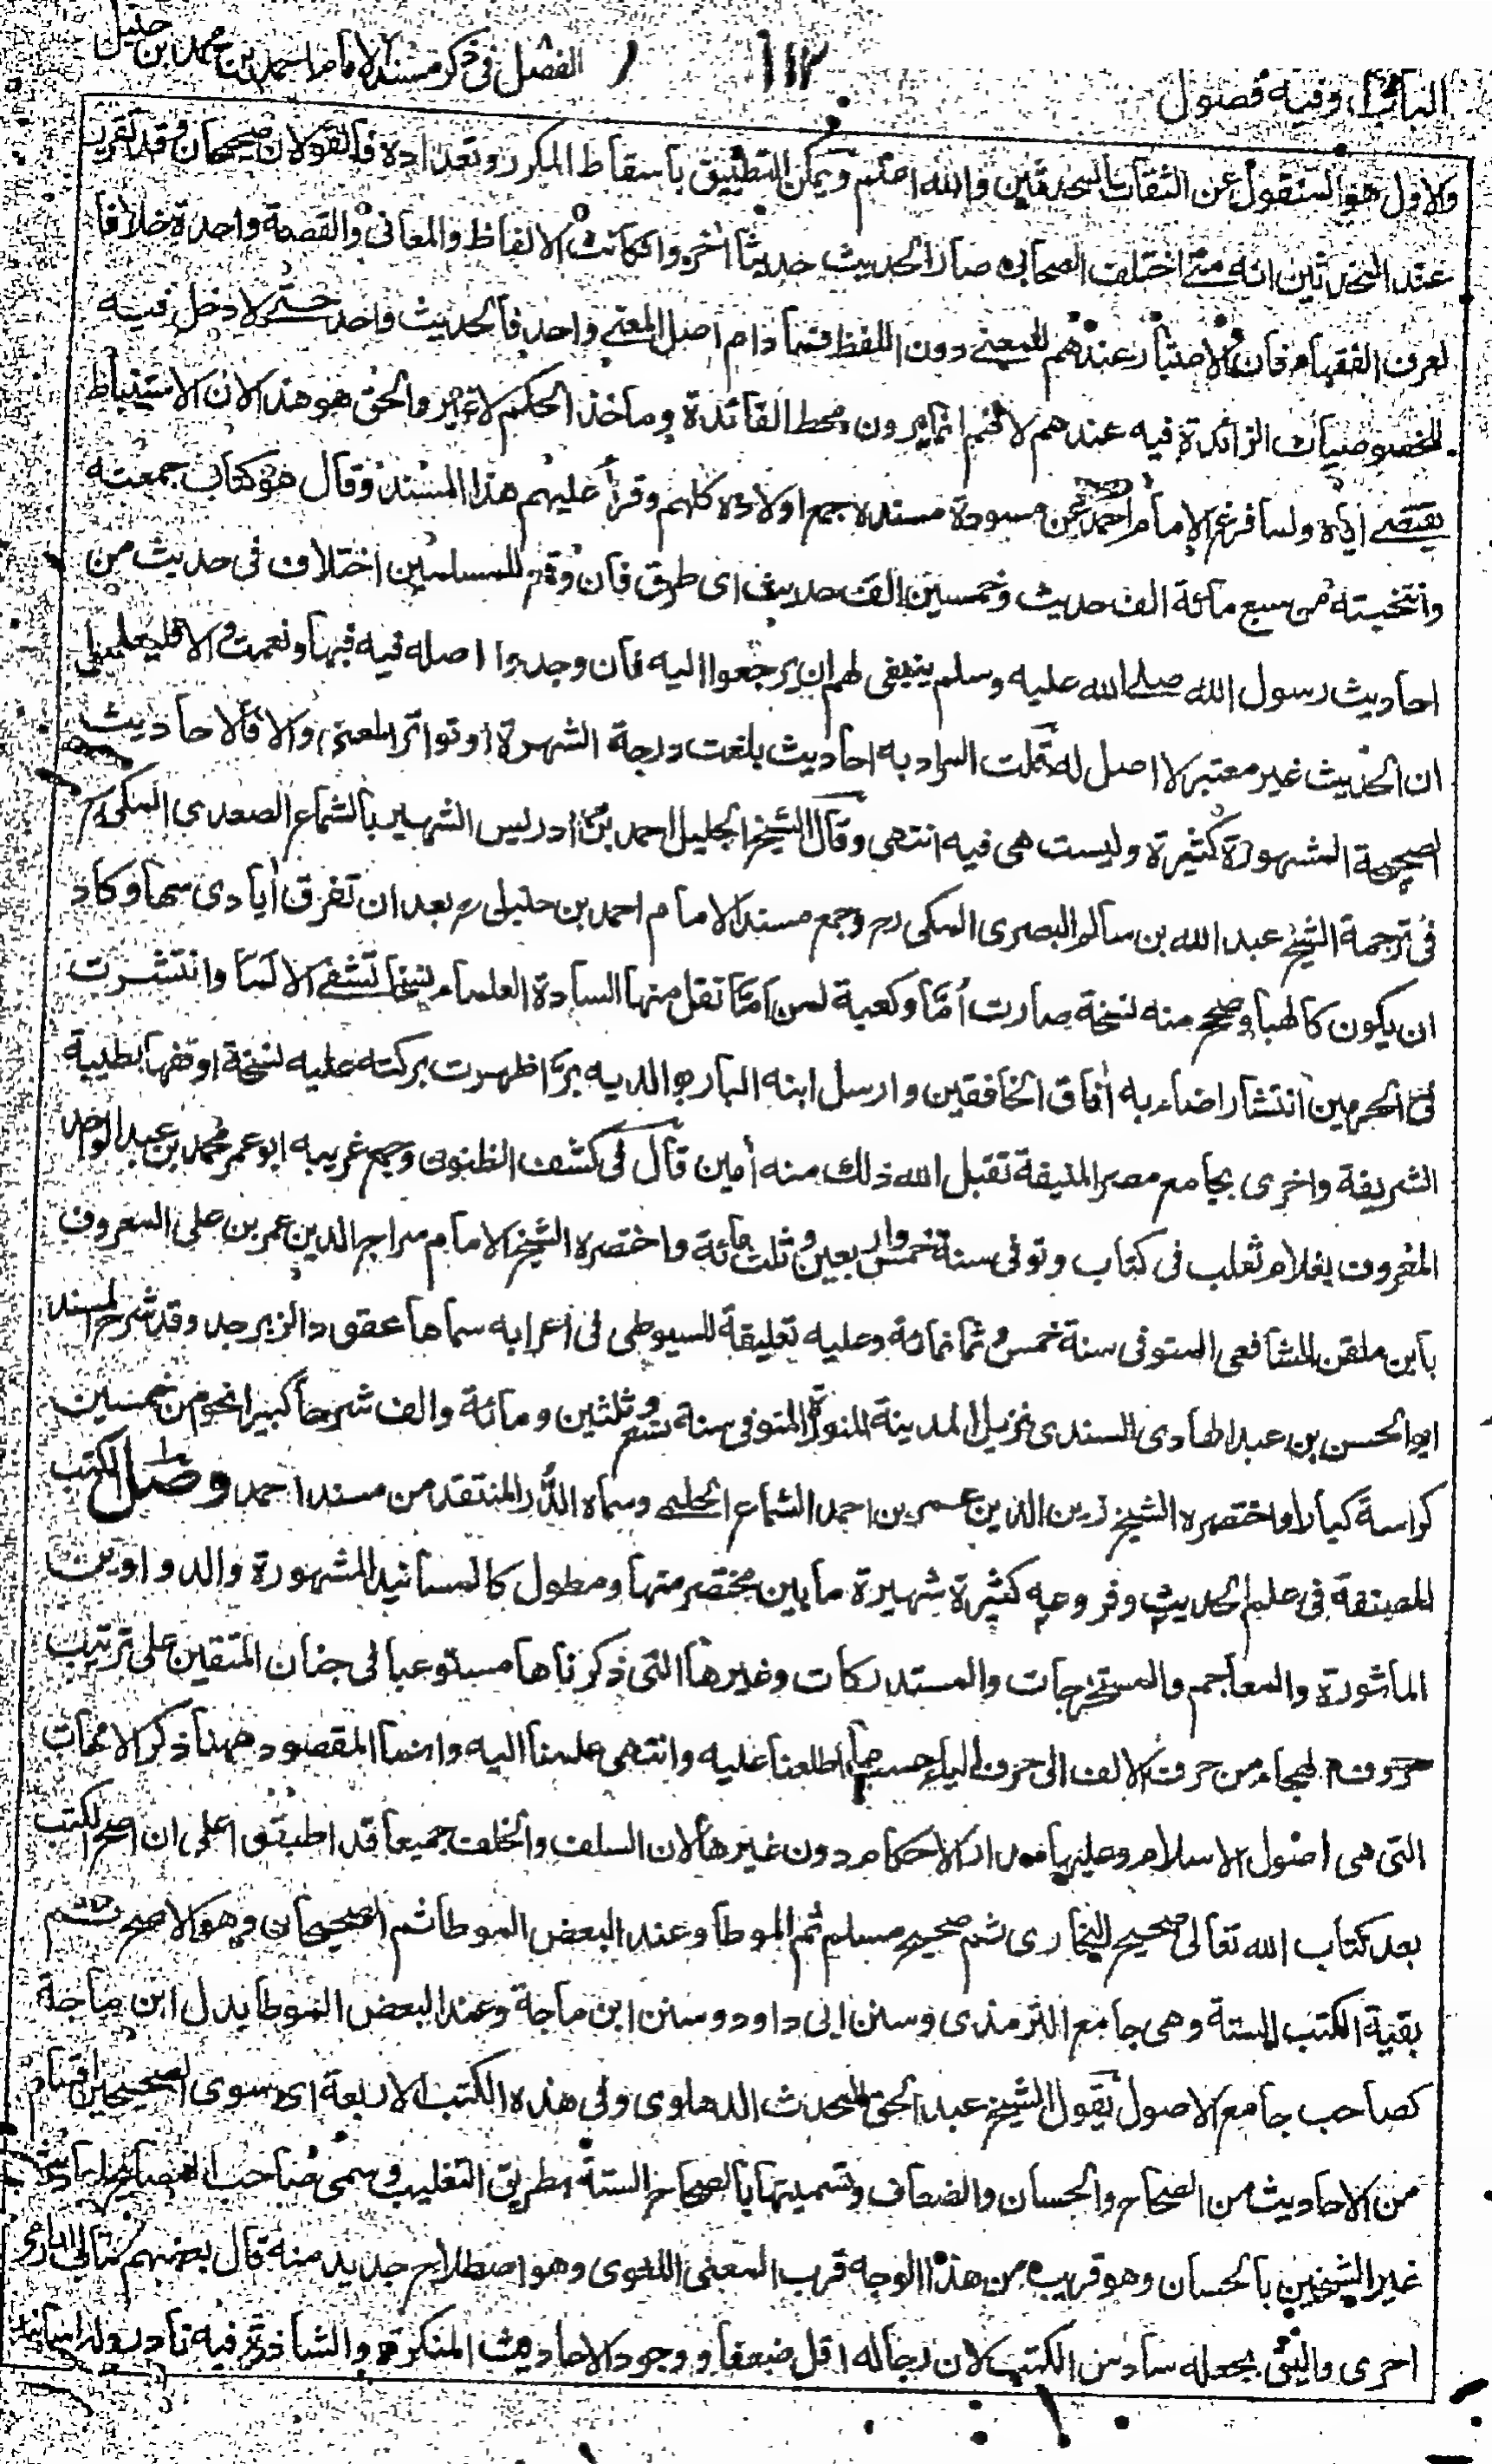 الباب وفيه فصول ١١٢ الفصل في ذكر مسند الامام احمد بن محمد بن حنبل
والاول هو المنقول عن الثقات المحدثين والله احكم ويمكن التطبيق باسقاط المكرر وتعداده فالقولان صحيحان وقد تقرر
عند المحدثين انه متى اختلف الصحابى صار الحديث حديثا اخر وان كانت الالفاظ والمعانى والقصة واحدة خلافا
لعرف الفقهاء فان الاعتبار عندهم للمعنى دون اللفظ فما دام اصل المعنى واحد فالحديث واحد حتى لا دخل فيه
للخصوصيات الزائدة فيه عندهم لانهم انما يرون محط الفائدة وماخذ الحكم لا غير والحق هو هذا لان الاستنباط
يقتضى اياه ولما فرغ الامام احمد عن مسودة مسنده جمع اولاده كلهم وقرأ عليهم هذا المسند وقال هو كتاب جمعته
وانتخبته من سبع مائة الف حديث وخمسين الف حديث اى طرق فان وقع للمسلمين اختلاف فى حديث من
احاديث رسول الله صلى الله عليه وسلم ينبغى لهم ان يرجعوا اليه فان وجدوا اصله فيه فبها ونعمت والا فليعلموا
ان الحديث غير معتبر لا اصل له قلت المراد به احاديث بلغت درجة الشهرة او تواتر المعنى والا فالاحاديث
لصحيحة المشهورة كثيرة وليست هى فيه انتهى وقال الشيخ الجليل احمد بن ادريس الشهير بالشماع الصعدى المكى رح
فى ترجمة الشيخ عبد الله بن سالم البصرى المكى رح وجمع مسند الامام احمد بن حنبل رح بعد ان تفرق أيادى سبا وكاد
ان يكون كالهبا وصحح منه نسخة صارت أمّا وكعبة لمن امّا نقل منها السادة العلماء نسخا تشفى الالما وانتشرت
فى الحرمين انتشارا ضاء به آفاق الخافقين وارسل ابنه البار بوالديه برّا ظهرت بركته عليه نسخة اوقفها بطيبة
الشريفة واخرى بجامع مصر المنيفة تقبل الله ذلك منه أمين قال فى كشف الظنون وجمع غريبه ابو عمر محمد بن عبد الواحد
المعروف بغلام ثعلب فى كتاب وتوفى سنة خمس واربعين وثلث مائة واختصره الشيخ الامام سراج الدين عمر بن على المعروف
بابن ملقن الشافعى المتوفى سنة خمس وثمانمائة وعليه تعليقة للسيوطى فى اعرابه سماها عقود الزبرجد وقد شرح المسند
ابو الحسن بن عبد الهادى السندى نزيل المدينة المنورة المتوفى سنة تسع وثلثين ومائة والف شرحا كبيرا نحو من خمسين
كراسة كبارا واختصره الشيخ زين الدين عمر بن احمد الشماع الحلبى وسماه الدُر المنتقد من مسند احمد وصل الكتب
المصنفة فى علم الحديث وفروعه كثيرة شهيرة ما بين مختصر منها ومطول كالمسانيد المشهورة والدواوين
الماثورة والمعاجم والمستخرجات والمستدركات وغيرها التى ذكرناها مستوعبا فى جنان المتقين على ترتيب
حروف الهجاء من حرف الالف الى حرف الياء حسب ما اطلعنا عليه وانتهى علمنا اليه وانما المقصود ههنا ذكر الامهات
التى هى اصول الاسلام وعليها مدار الاحكام دون غيرها لان السلف والخلف جميعا قد اطبقوا على ان اصح الكتب
بعد كتاب الله تعالى صحيح البخارى ثم صحيح مسلم ثم الموطا وعند البعض الموطا ثم الصحيحان وهو الاصح ثم
بقية الكتب الستة وهى جامع الترمذى وسنن ابى داود وسنن ابن ماجة وعند البعض الموطا بدل ابن ماجة
كصاحب جامع الاصول يقول الشيخ عبد الحق المحدث الدهلوى وفى هذه الكتب الاربعة اى سوى الصحيحين اقسام
من الاحاديث من الصحاح والحسان والضعاف وتسميتها بالصحاح الستة بطريق التغليب وسمى صاحب المصابيح احاديث
غير الشيخين بالحسان وهو قريب من هذا الوجه قرب المعنى اللغوى وهو اصطلاح جديد منه قال بعضهم كتاب الدارمى
احرى واليق بجعله سادس الكتب لان رجاله اقل ضعفا ووجود الاحاديث المنكرة والشاذة فيه نادر وله اسانيد